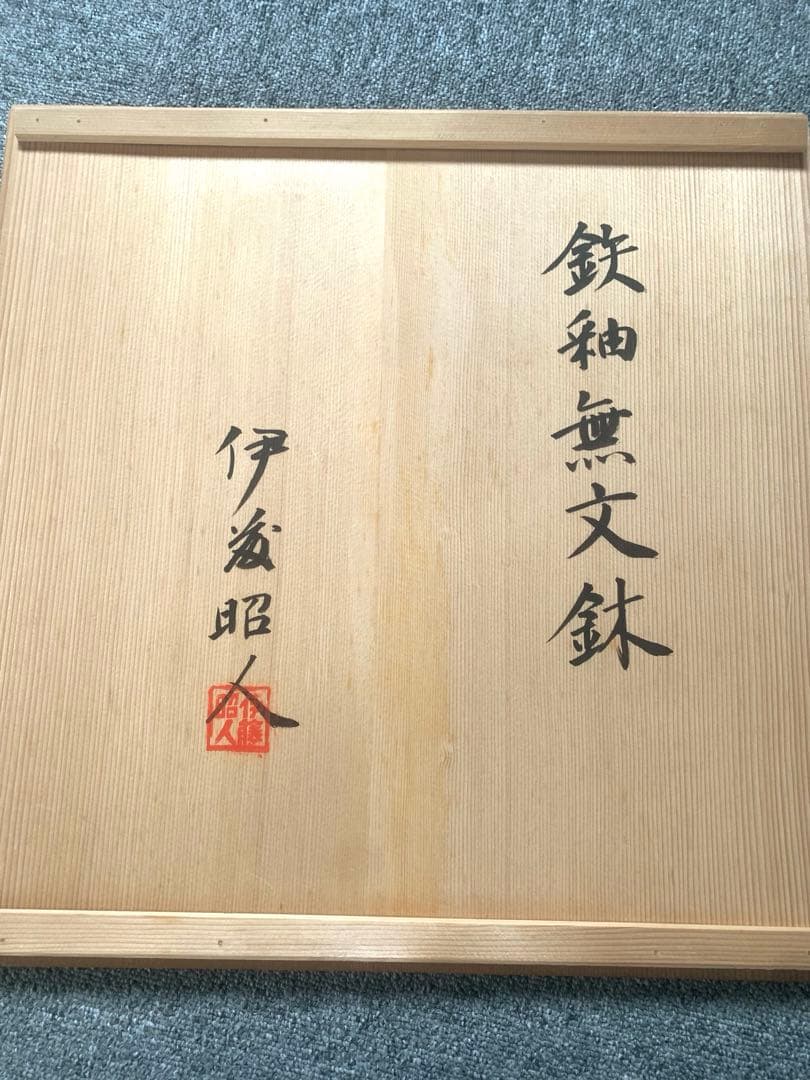 鉄釉無文鉢
伊藤昭人
伊藤昭人